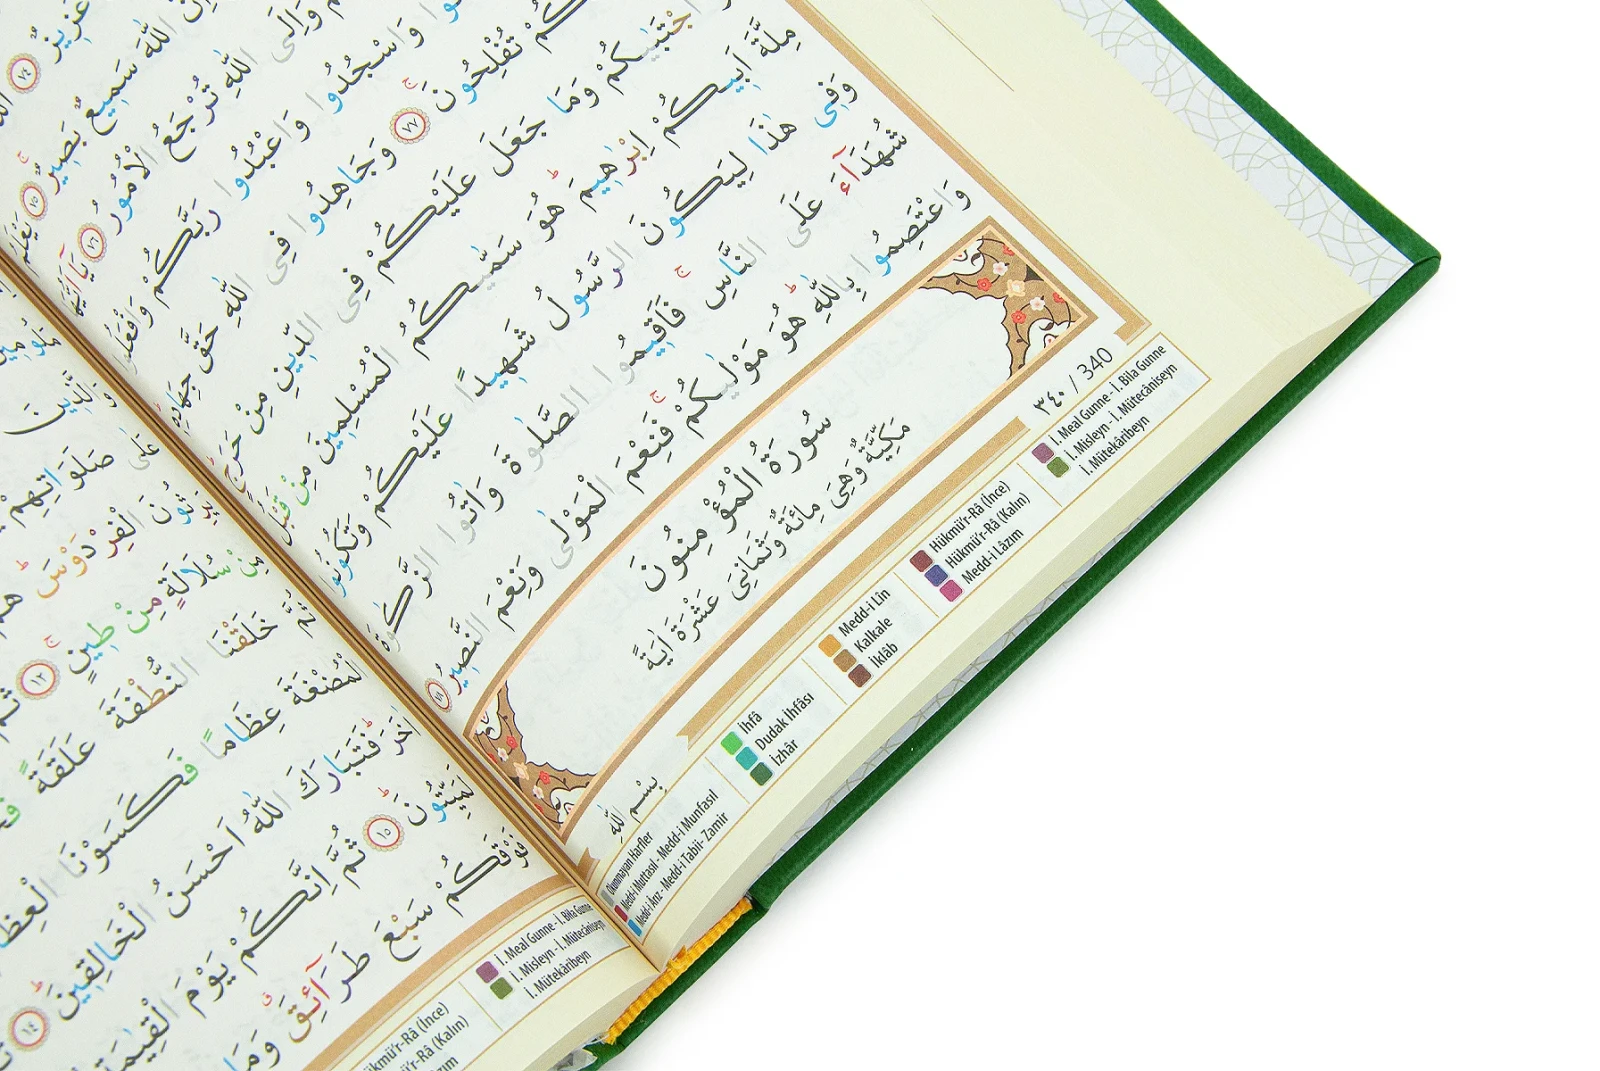 عَزِيزٌ ﴿٧٤﴾
اللّٰهَ سَمِيعٌ بَصِيرٌ ﴿٧٥﴾ يَعْلَمُ
وَاِلَى اللّٰهِ تُرْجَعُ الْاُمُورُ ﴿٧٦﴾ يَٓا اَيُّهَا
وَاسْجُدُوا وَاعْبُدُوا رَبَّكُمْ وَافْعَلُوا
تُفْلِحُونَ ﴿٧٧﴾ وَجَاهِدُوا فِى اللّٰهِ حَقَّ جِهَادِهِ
اجْتَبٰيكُمْ وَمَا جَعَلَ عَلَيْكُمْ فِى الدِّينِ مِنْ حَرَجٍ
مِلَّةَ اَبِيكُمْ اِبْرٰهِيمَ هُوَ سَمّٰيكُمُ الْمُسْلِمِينَ مِنْ قَبْلُ
وَفِى هٰذَا لِيَكُونَ الرَّسُولُ شَهِيدًا عَلَيْكُمْ وَتَكُونُوا
شُهَدَٓاءَ عَلَى النَّاسِ فَاَقِيمُوا الصَّلٰوةَ وَاٰتُوا الزَّكٰوةَ
وَاعْتَصِمُوا بِاللّٰهِ هُوَ مَوْلٰيكُمْ فَنِعْمَ الْمَوْلٰى وَنِعْمَ النَّصِيرُ ﴿٧٨﴾
سُورَةُ الْمُؤْمِنُونَ
مَكِّيَّةٌ وَهِىَ مِائَةٌ وَثَمَانِىَ عَشْرَةَ اٰيَةً
بِسْمِ اللّٰهِ
٣٤٠ / 340
Okunmayan Harfler
Medd-i Muttasıl - Medd-i Munfasıl
Medd-i Arız - Medd-i Tabii - Zamir
İhfâ
Dudak İhfâsı
İzhâr
Medd-i Lîn
Kalkale
İklâb
Hükmü'r-Râ (İnce)
Hükmü'r-Râ (Kalın)
Medd-i Lâzım
İ. Meal Gunne - İ. Bila Gunne
İ. Misleyn - İ. Mütecâniseyn
İ. Mütekâribeyn
وَالَّذِينَ
عَلٰى صَلَوَاتِهِمْ
يَرِثُونَ الْفِرْدَوْسَ هُمْ
مِنْ سُلَالَةٍ مِنْ طِينٍ ﴿١٢﴾ ثُمَّ
ثُمَّ خَلَقْنَا النُّطْفَةَ عَلَقَةً
الْمُضْغَةَ عِظَامًا فَكَسَوْنَا الْعِظَامَ
اٰخَرَ فَتَبَارَكَ اللّٰهُ اَحْسَنُ الْخَالِقِينَ ﴿١٤﴾
لَمَيِّتُونَ ﴿١٥﴾ ثُمَّ اِنَّكُمْ يَوْمَ الْقِيٰمَةِ
فَوْقَكُمْ سَبْعَ طَرَٓائِقَ وَمَا
Hükmü'r-Râ (İnce)
Hükmü'r-Râ (Kalın)
İ. Meal Gunne - İ. Bila Gunne
İ. Misleyn - İ. Mütecâniseyn
İ. Mütekâribeyn